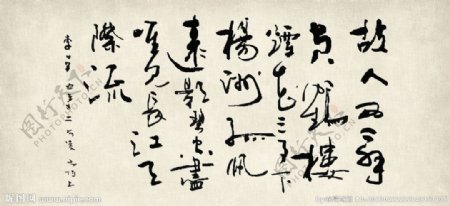 故人西辞
黄鹤楼
烟花三月下
楊洲孤帆
遠影碧空盡
唯见长江天
際流
昵图网 www.nipic.com